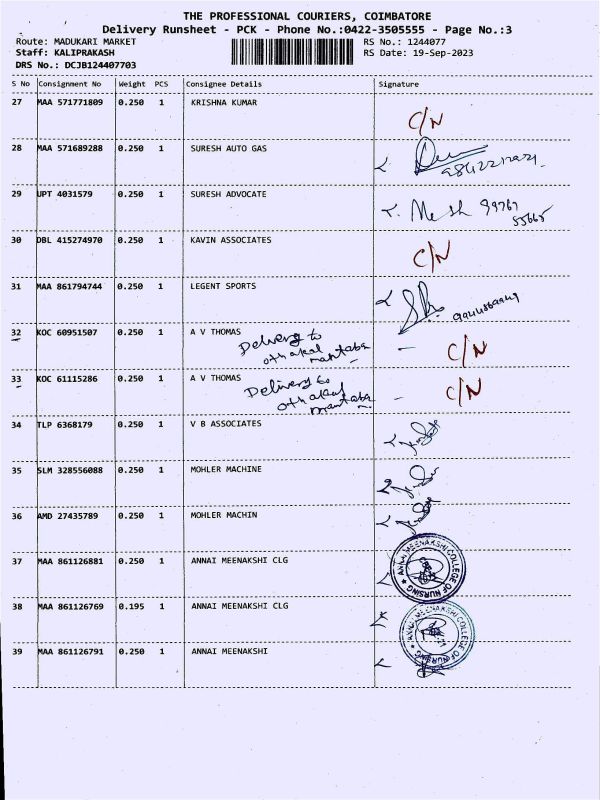 THE PROFESSIONAL COURIERS, COIMBATORE
Delivery Runsheet - PCK - Phone No.:0422-3505555 - Page No.:3
Route: MADUKARI MARKET RS No.: 1244077
Staff: KALIPRAKASH RS Date: 19-Sep-2023
DRS No.: DCJB124407703
S No Consignment No Weight PCS Consignee Details Signature
27 MAA 571771809 0.250 1 KRISHNA KUMAR
C/N
28 MAA 571689288 0.250 1 SURESH AUTO GAS
29 UPT 4031579 0.250 1 SURESH ADVOCATE
30 DBL 415274970 0.250 1 KAVIN ASSOCIATES
C/N
31 MAA 861794744 0.250 1 LEGENT SPORTS
32 KOC 60951507 0.250 1 A V THOMAS
Delivery to
C/N
33 KOC 61115286 0.250 1 A V THOMAS
Delivery to
C/N
34 TLP 6368179 0.250 1 V B ASSOCIATES
35 SLM 328556088 0.250 1 MOHLER MACHINE
36 AMD 27435789 0.250 1 MOHLER MACHIN
37 MAA 861126881 0.250 1 ANNAI MEENAKSHI CLG
ANNAI MEENAKSHI COLLEGE OF NURSING
38 MAA 861126769 0.195 1 ANNAI MEENAKSHI CLG
ANNAI MEENAKSHI COLLEGE OF NURSING
39 MAA 861126791 0.250 1 ANNAI MEENAKSHI